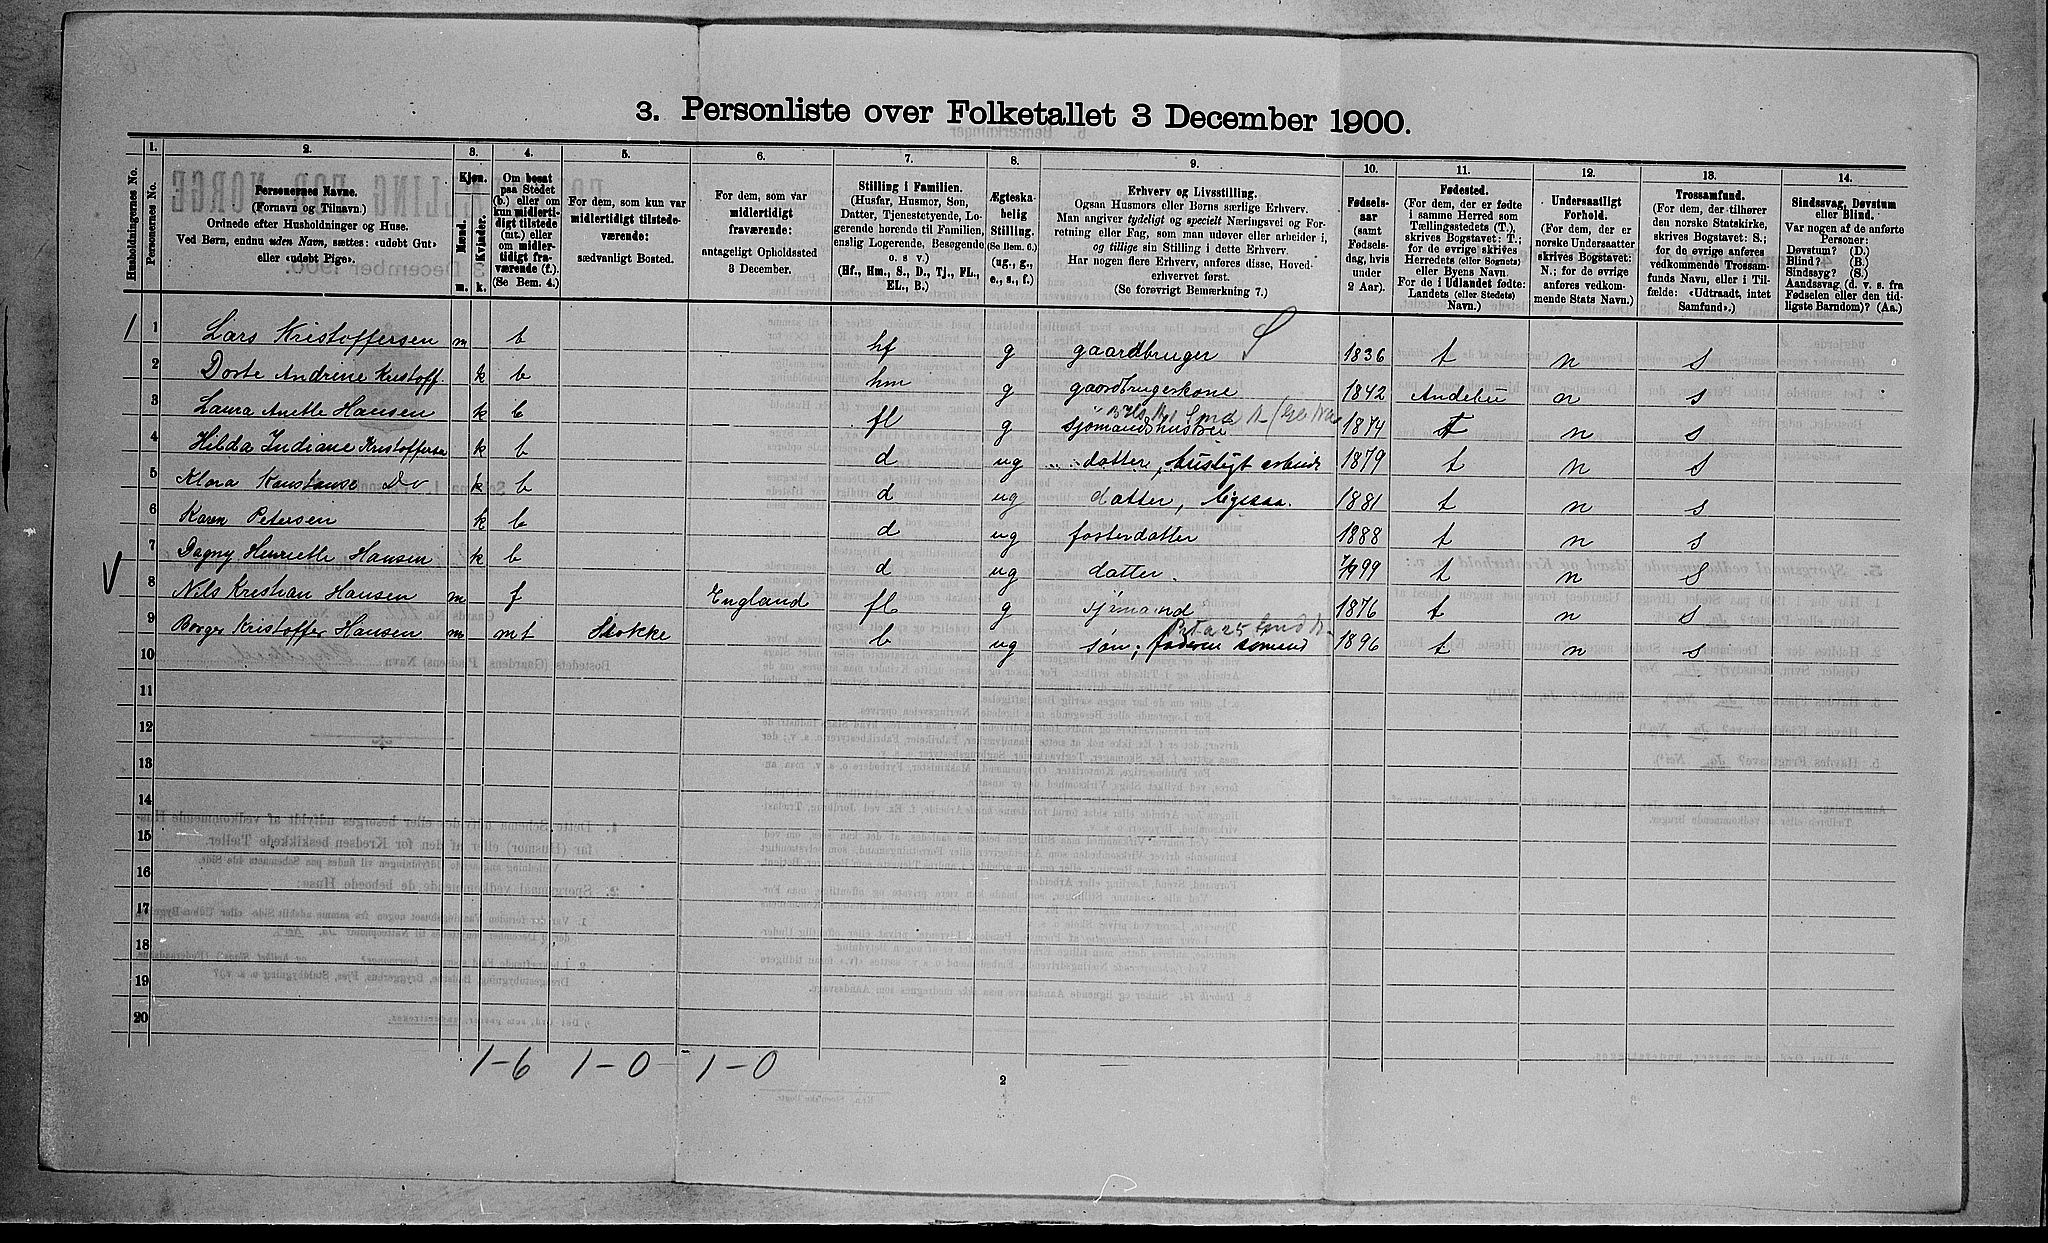 3. Personliste over Folketallet 3 December 1900.
Husholdningernes No.
1. Personernes No.
2. Personernes Navne. (Fornavn og Tilnavn.) Ordnede efter Husholdninger og Huse. Ved Børn, endnu uden Navn, sættes: «udøbt Gut» eller «udøbt Pige».
3. Kjøn. Mænd. Kvinder. m. k.
4. Om bosat paa Stedet (b.) eller om kun midlertidigt tilstede (mt.) eller om midlertidigt fraværende (f.). (Se Bem. 4.)
5. For dem, som kun var midlertidigt tilstedeværende: sædvanligt Bosted.
6. For dem, som var midlertidigt fraværende: antageligt Opholdssted 3 December.
7. Stilling i Familien. (Husfar, Husmor, Søn, Datter, Tjenestetyende, Logerende hørende til Familien, enslig Logerende, Besøgende o. s v.) (Hf., Hm., S., D., Tj., FL., EL., B.)
8. Ægteskabelig Stilling. (Se Bem. 6.) (ug., g., e., s., f.)
9. Erhverv og Livsstilling. Ogsaa Husmors eller Børns særlige Erhverv. Man angiver tydeligt og specielt Næringsvei og Forretning eller Fag, som man udøver eller arbeider i, og tillige sin Stilling i dette Erhverv. Har nogen flere Erhverv, anføres disse, Hovederhvervet først. (Se forøvrigt Bemærkning 7.)
10. Fødselsaar (samt Fødselsdag, hvis under 2 Aar).
11. Fødested. (For dem, der er fødte i samme Herred som Tællingsstedets (T.), skrives Bogstavet: T.; for de øvrige skrives Herredets (eller Sognets) eller Byens Navn. For de i Udlandet fødte: Landets (eller Stedets) Navn.)
12. Undersaatligt Forhold. (For dem, der er norske Undersaatter skrives Bogstavet: N.; for de øvrige anføres vedkommende Stats Navn.)
13. Trossamfund. (For dem, der tilhører den norske Statskirke, skrives Bogstavet: S.; for de øvrige anføres vedkommende Trossamfunds Navn, eller i Tilfælde: «Udtraadt, intet Samfund».)
14. Sindssvag, Døvstum eller Blind. Var nogen af de anførte Personer: Døvstum? (D.) Blind? (B.) Sindssyg? (S.) Aandssvag (d. v. s. fra Fødselen eller den tidligste Barndom)? (Aa.)
1 1 Lars Kristoffersen m b hf g gaardbruger S 1836 t n s
2 Dorte Andrine Kristoff. k b hm g gaardbrugerskone 1842 Andebu n s
3 Laura Anette Hansen k b fl g sjømandshustru 1874 T n s
4 Hilda Indiane Kristoffersen k b d ug datter, husligt arbeide 1879 t n s
5 Klara Konstanse Do k b d ug datter, ligesaa. 1881 t n s
6 Karen Petersen k b d ug fosterdatter 1888 t n s
7 Dagny Henriette Hansen k b d ug datter. 99 t n s
8 Nils Kristian Hansen m f England fl g sjømand 1876 t n s
9 Borger Kristoffer Hansen m mt Stokke b ug søn, faderen sømand 1896 t n s
10
11
12
13
14
15
16
17
18
19
20
1-6 1-0 1-0
2